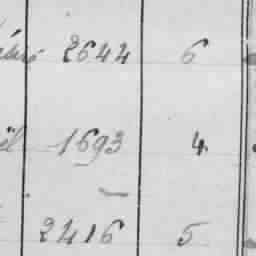 2644 6
1693 4
—
2416 5